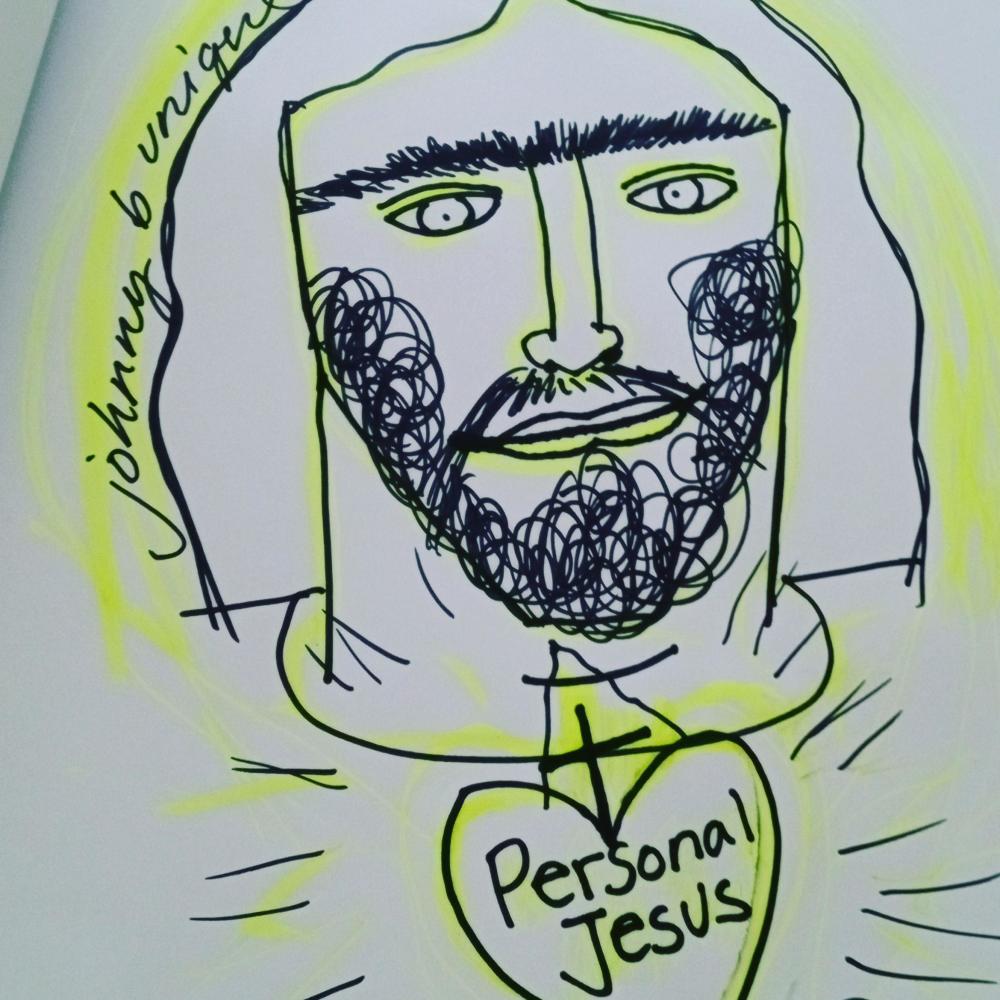 johnny b unique
Personal
Jesus